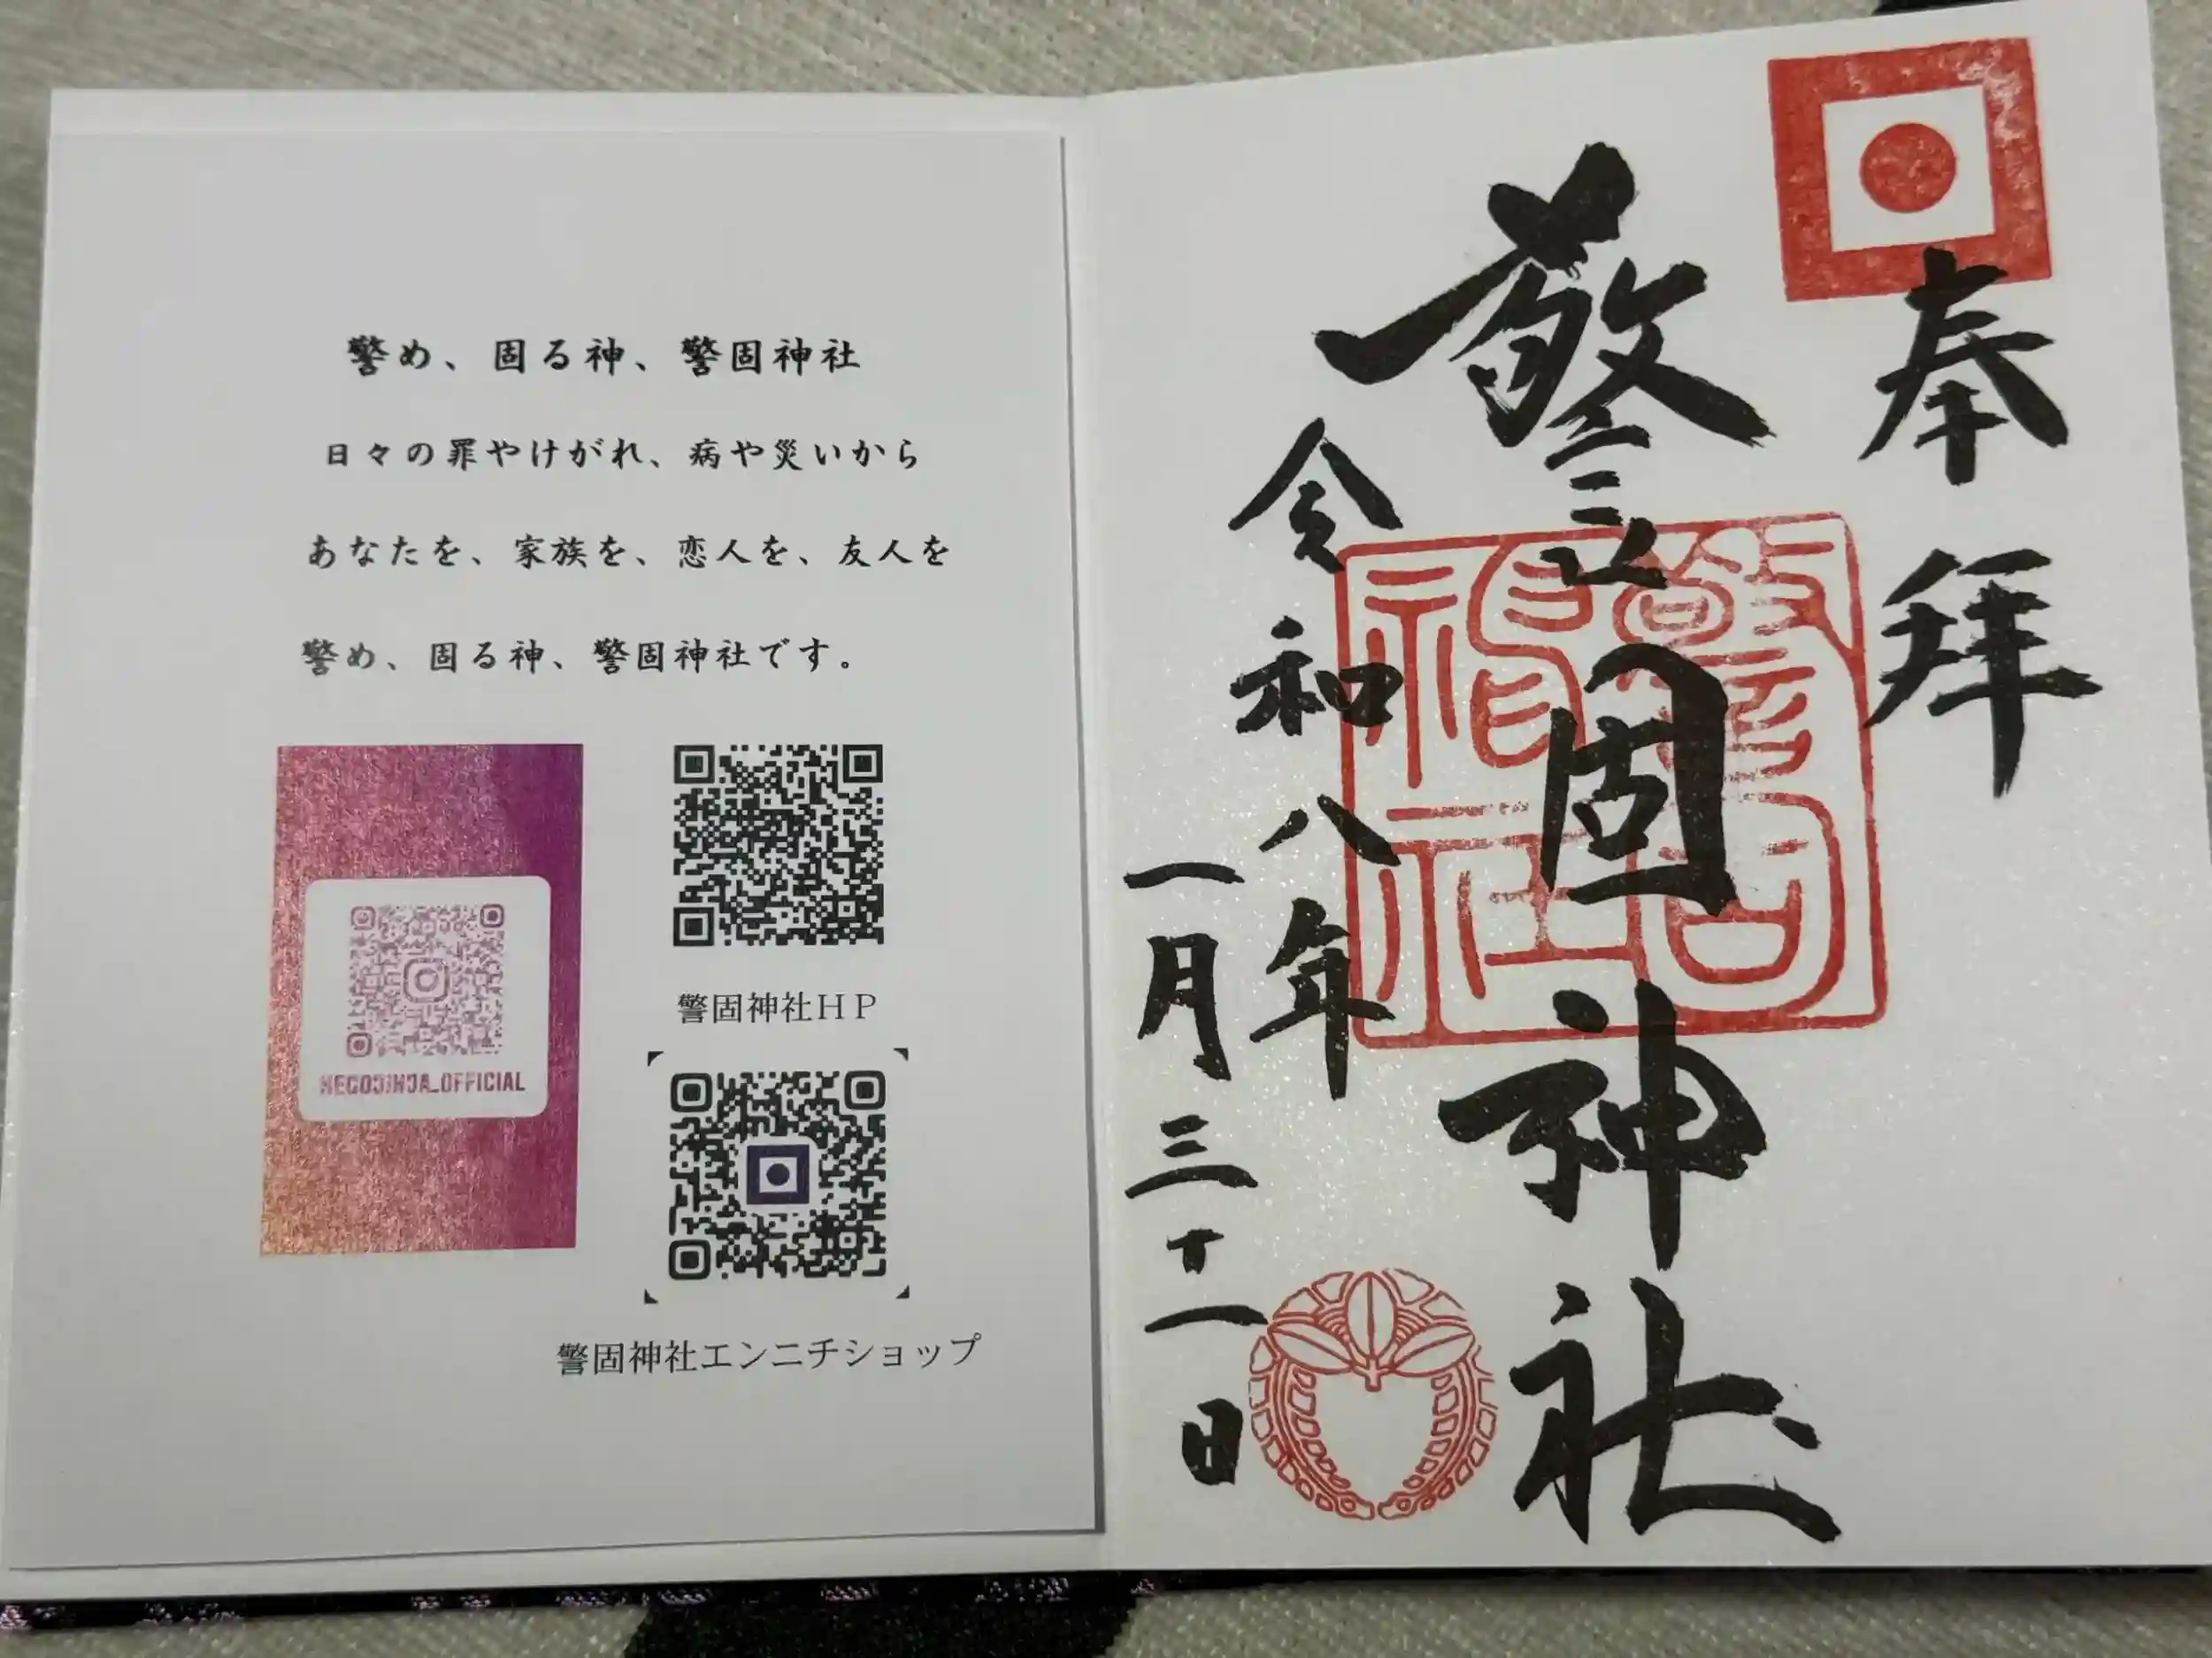 奉拝
警固神社
令和八年
一月三十一日
警固神社
警め、固る神、警固神社
日々の罪やけがれ、病や災いから
あなたを、家族を、恋人を、友人を
警め、固る神、警固神社です。
KEGOJINJA_OFFICIAL
警固神社HP
警固神社エンニチショップ